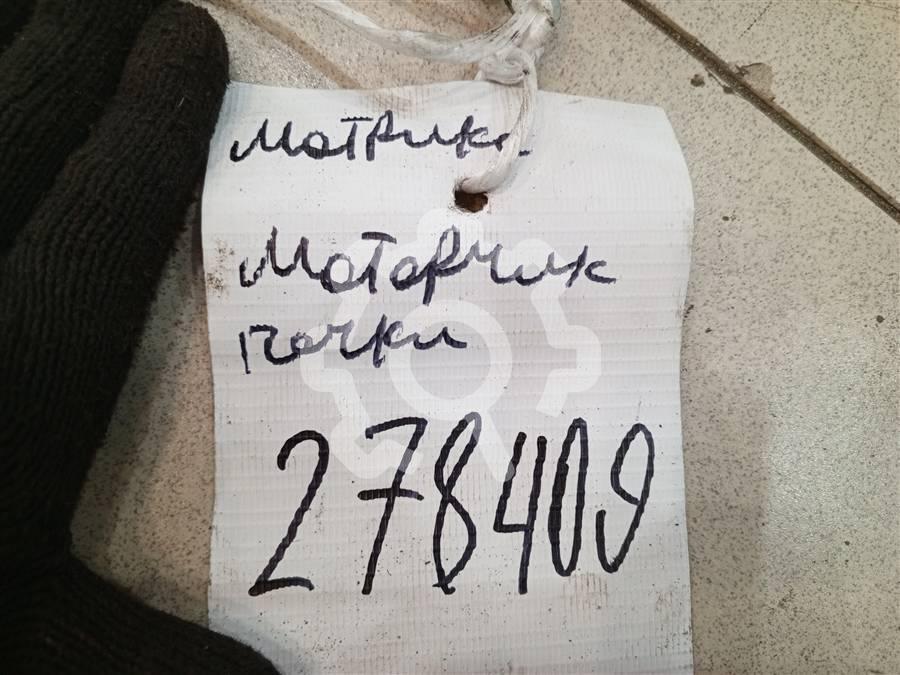 Матрикс
Моторчик
печки
278409